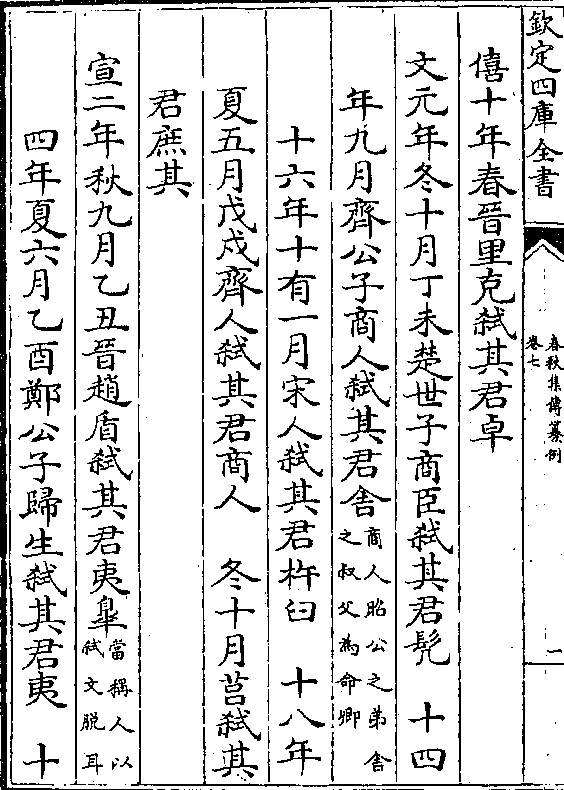 欽定四庫全書
春秋集傳纂例
卷七
一
僖十年春晉里克弒其君卓
文元年冬十月丁未楚世子商臣弒其君髠　十四
年九月齊公子商人弒其君舍商人昭公之弟舍
之叔父為命卿
十六年十有一月宋人弒其君杵臼　十八年
夏五月戊戍齊人弒其君商人　冬十月莒弒其
君庶其
宣二年秋九月乙丑晉趙盾弒其君夷臯當稱人以
弒文脱耳
四年夏六月乙酉鄭公子歸生弒其君夷　十